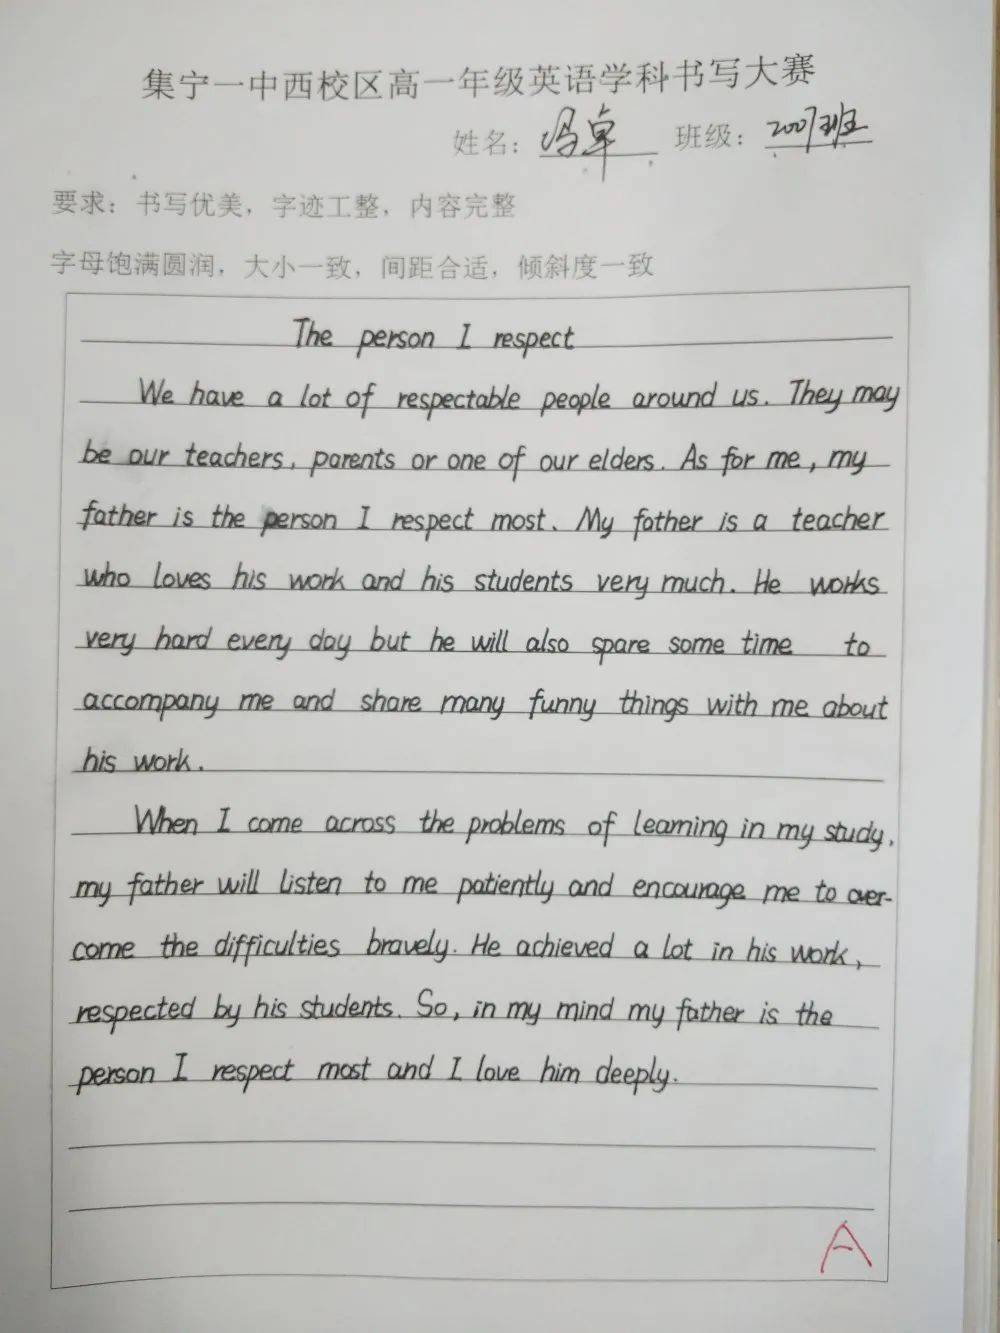 集宁一中西校区高一年级英语学科书写大赛
姓名：冯卓 班级：2007班
要求：书写优美，字迹工整，内容完整
字母饱满圆润，大小一致，间距合适，倾斜度一致
The person I respect
We have a lot of respectable people around us. They may
be our teachers, parents or one of our elders. As for me, my
father is the person I respect most. My father is a teacher
who loves his work and his students very much. He works
very hard every day but he will also spare some time to
accompany me and share many funny things with me about
his work.
When I come across the problems of learning in my study,
my father will listen to me patiently and encourage me to over-
come the difficulties bravely. He achieved a lot in his work,
respected by his students. So, in my mind my father is the
person I respect most and I love him deeply.
A